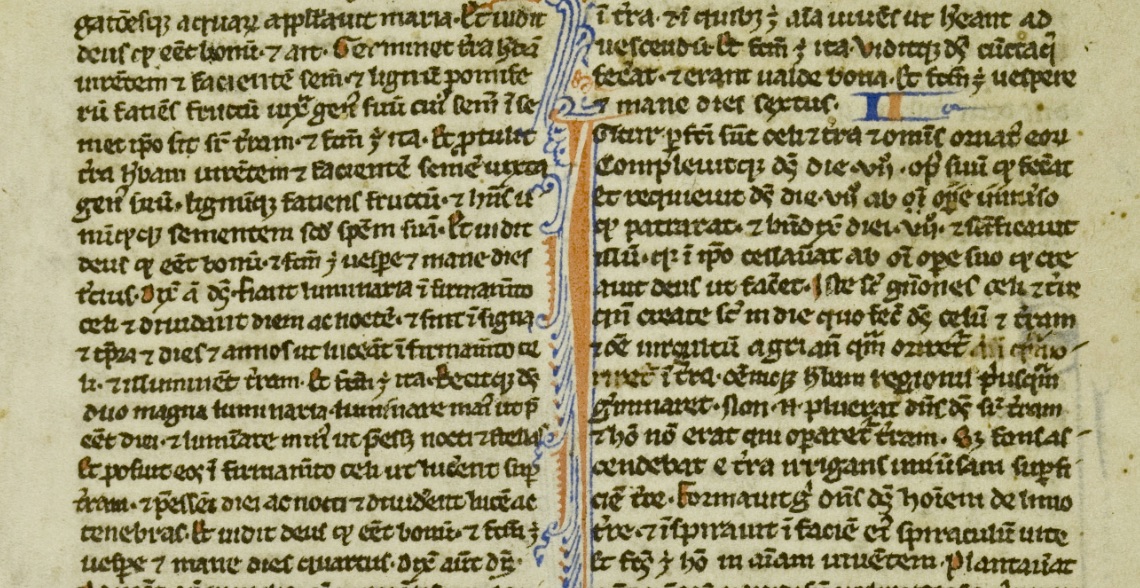 gatōesq; aquaꝝ appllauit maria. Et uidit
deus qꝫ eēt bonū. ⁊ ait. Germinet t̄ra h̄bā
uirētem ⁊ facientē sem̄. ⁊ lignū pomife
rū fatiēs fructū iuxᷓ gen̄ suū cui᷒ sem̄ ī se
met ip̄o sit sr̄ t̄ram. ⁊ fcm̄ ē ita. Et ꝓtulit
t̄ra h̄bam uirētem ⁊ facientē semē iuxta
gen᷒ suū. lignūq; fatiens fructū. ⁊ hn̄s u
nūqͣqꝫ sementem scd̄ spēm suā. Et uidit
deus qꝫ eēt bonū. ⁊ fcm̄ ē uesꝑe ⁊ mane dies
t̄cius. Dix̄ ā ds̄. fiant luminaria ī firmam̄to
celi ⁊ diuidant diem ac noctē. ⁊ sint ī signa
⁊ tp̄ra ⁊ dies ⁊ annos ut luceāt ī firmam̄to ce
li. ⁊ illuminēt t̄ram. Et fcm̄ ē ita. Fecitq; ds̄
duo magna luminaria. luminare mai᷒ ut p̄
eēt diei. ⁊ lumiare min᷒ ut p̄ess; nocti ⁊ stellas
Et posuit eos ī firmam̄to celi ut lucēnt suꝑ
t̄ram. ⁊ p̄essēt diei ac nocti ⁊ diuidēnt lucē ac
tenebras. Et uidit deus qꝫ eēt bonū. ⁊ fcm̄ ē
uesꝑe ⁊ mane dies quartus. Dix̄ aūt ds̄.
ī t̄ra. ⁊ ī quib; ē aīa uiuēs ut h̄eant ad
uescendū. Et fcm̄ ē ita. Viditq; ds̄ cūcta q̄
fec̄at. ⁊ erant ualde bona. Et fcm̄ ē uespere
⁊ mane dies sextus. II
IGitur ꝑfc̄i sūt celi ⁊ t̄ra ⁊ omīs ornat᷒ eoꝝ
Compleuitq; ds̄ die .vii. op᷒ suū qꝫ fec̄at
Et requieuit ds̄ die .vii. ab oī oꝑe uniūso
qꝫ patrarat. ⁊ bn̄dix̄ diei .vii. ⁊ sc̄ificauit
illū. qꝛ ī ip̄o cessau̅at ab oī ope suo qꝫ cre
auit deus ut fac̄et. Iste st̄ gn̄ōnes celi ⁊ t̄re
qn̄ create st̄ in die quo fec̄ ds̄ celū ⁊ t̄ram
⁊ ōē uirgultū agri an̄ qͣm oriret̄
riret̄ ī t̄ra. ōēmq; h̄bam regionis p̄usqͣm
gͥminaret. Non .n. pluerat dn̄s ds̄ sr̄ t̄ram
⁊ hō nō erat qui oꝑaret̄ t̄ram. Sꝫ fons as
cendebat e t̄ra irrigans uniūsam suꝑfi
ciē t̄re. Formauit gͥ dn̄s ds̄ hoīem de limo
t̄re. ⁊ īspirauit ī faciē ei᷒ spiraculū uite
Et fcs̄ ē hō in aīam uiuētem. Plantau̅at